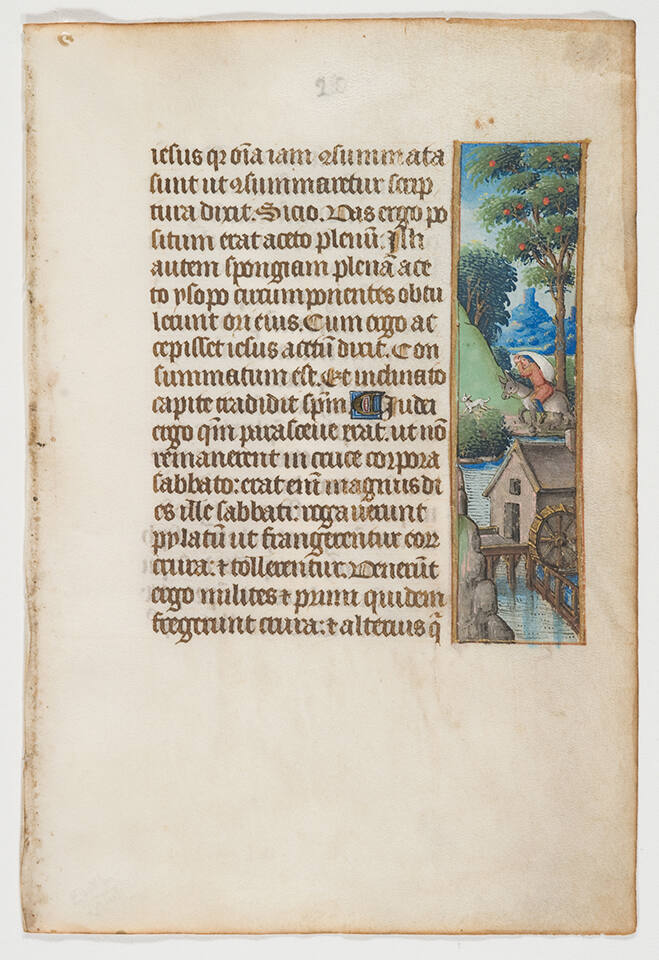 20
iesus qr oı̄a iam ꝯsummata
sunt ut ꝯsummaretur scrip
tura dixit. Sicio. Vas ergo po
situm erat aceto plenū. Illi
autem spongiam plenā ace
to ysopo circumponentes obtu
lerunt ori eius. Cum ergo ac
cepisset iesus acetū dixit. Con
summatum est. Et inclinato
capite tradidit sp̄m. Iudei
ergo qm̄ parasceue erat. ut nō
remanerent in cruce corpora
sabbato: erat em̄ magnus di
es ille sabbati: rogauerunt
pylatū ut frangerentur cor
crura: ⁊ tollerentur. Venerūt
ergo milites ⁊ primi quidem
fregerunt crura: ⁊ alterius q̄